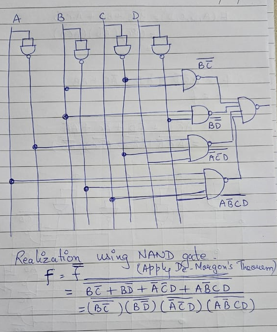 A B C D
BC̅
B̅D̅
A̅C̅D
A̅B̅CD
Realization using NAND gate.
f = f̿ (Apply De-Morgan's Theorem)
= BC̅ + B̅D̅ + A̅C̅D + AB̅CD
= (BC̅) (B̅D̅) (A̅C̅D) (AB̅CD)